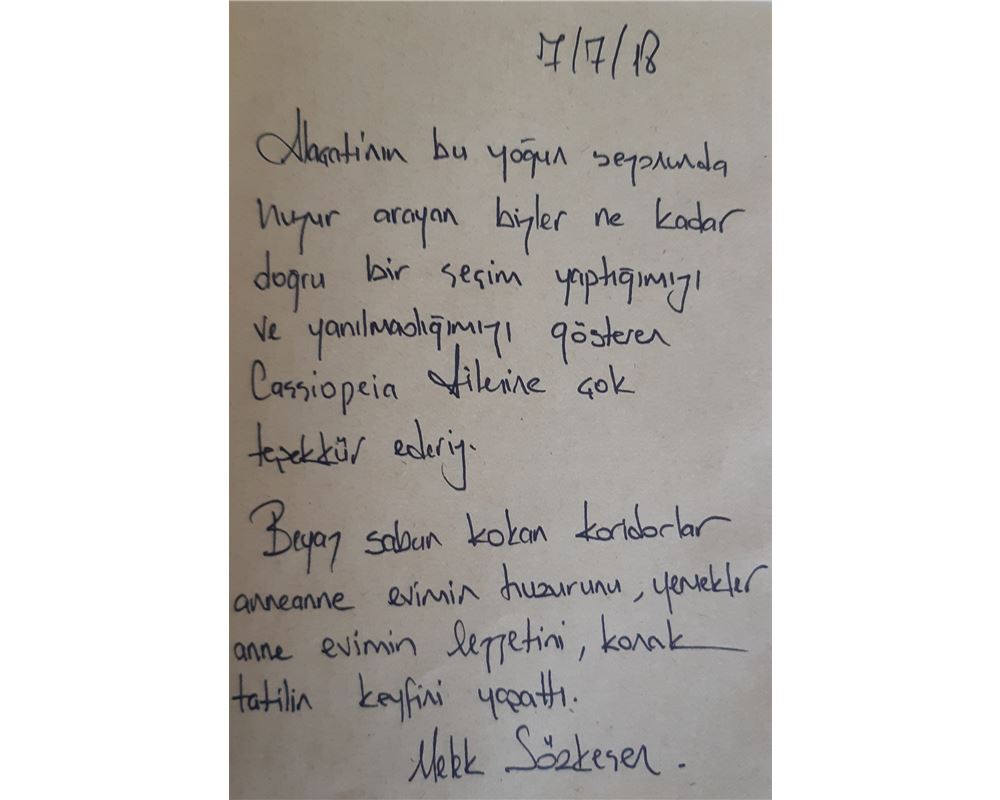 7/7/18
Alaçatı'nın bu yoğun sezonunda
huzur arayan bizler ne kadar
doğru bir seçim yaptığımızı
ve yanılmadığımızı gösteren
Cassiopeia Ailesine çok
teşekkür ederiz.
Beyaz sabun kokan koridorlar
anneanne evimin huzurunu, yemekler
anne evimin lezzetini, konak
tatilin keyfini yaşattı.
Melek Sözkesen.